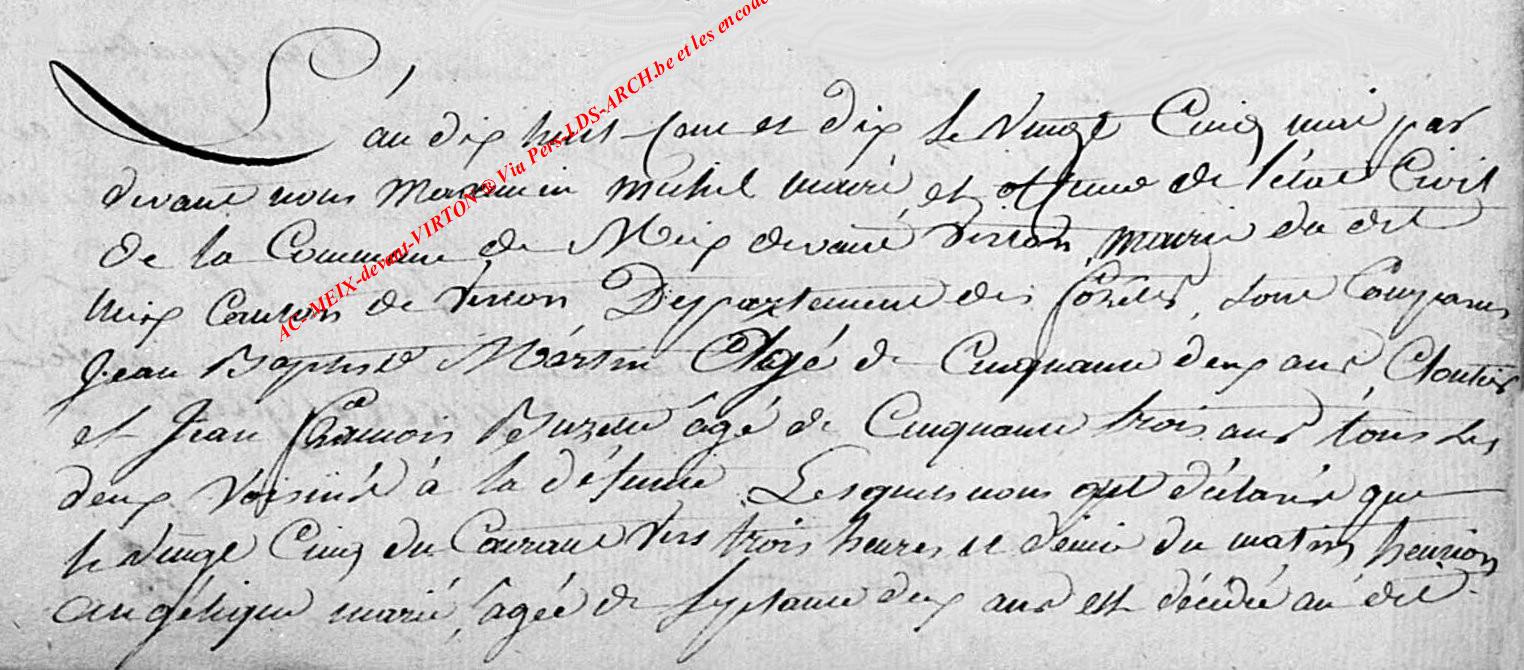 L'an dix huit cent et dix le vingt Cinq mai par
devant nous Maximin Michel maire, et officier de l'état Civil
de la Commune de Meix devant Virton, mairie du dit
Meix Canton de Virton Departement des forêts, sont Comparus
Jean Baptiste Martin Agé de Cinquante deux ans, Cloutier
et Jean francois agé de Cinquante trois ans tous les
deux voisins à la défunte. Lesquels nous ont déclarés que
le vingt Cinq du Courant vers trois heures et demie du matin henrion
angélique marie, agée de septante deux ans est décédée au dit
AC-MEIX-devant-VIRTON ® Via Pers. LDS-ARCH.be et les encod